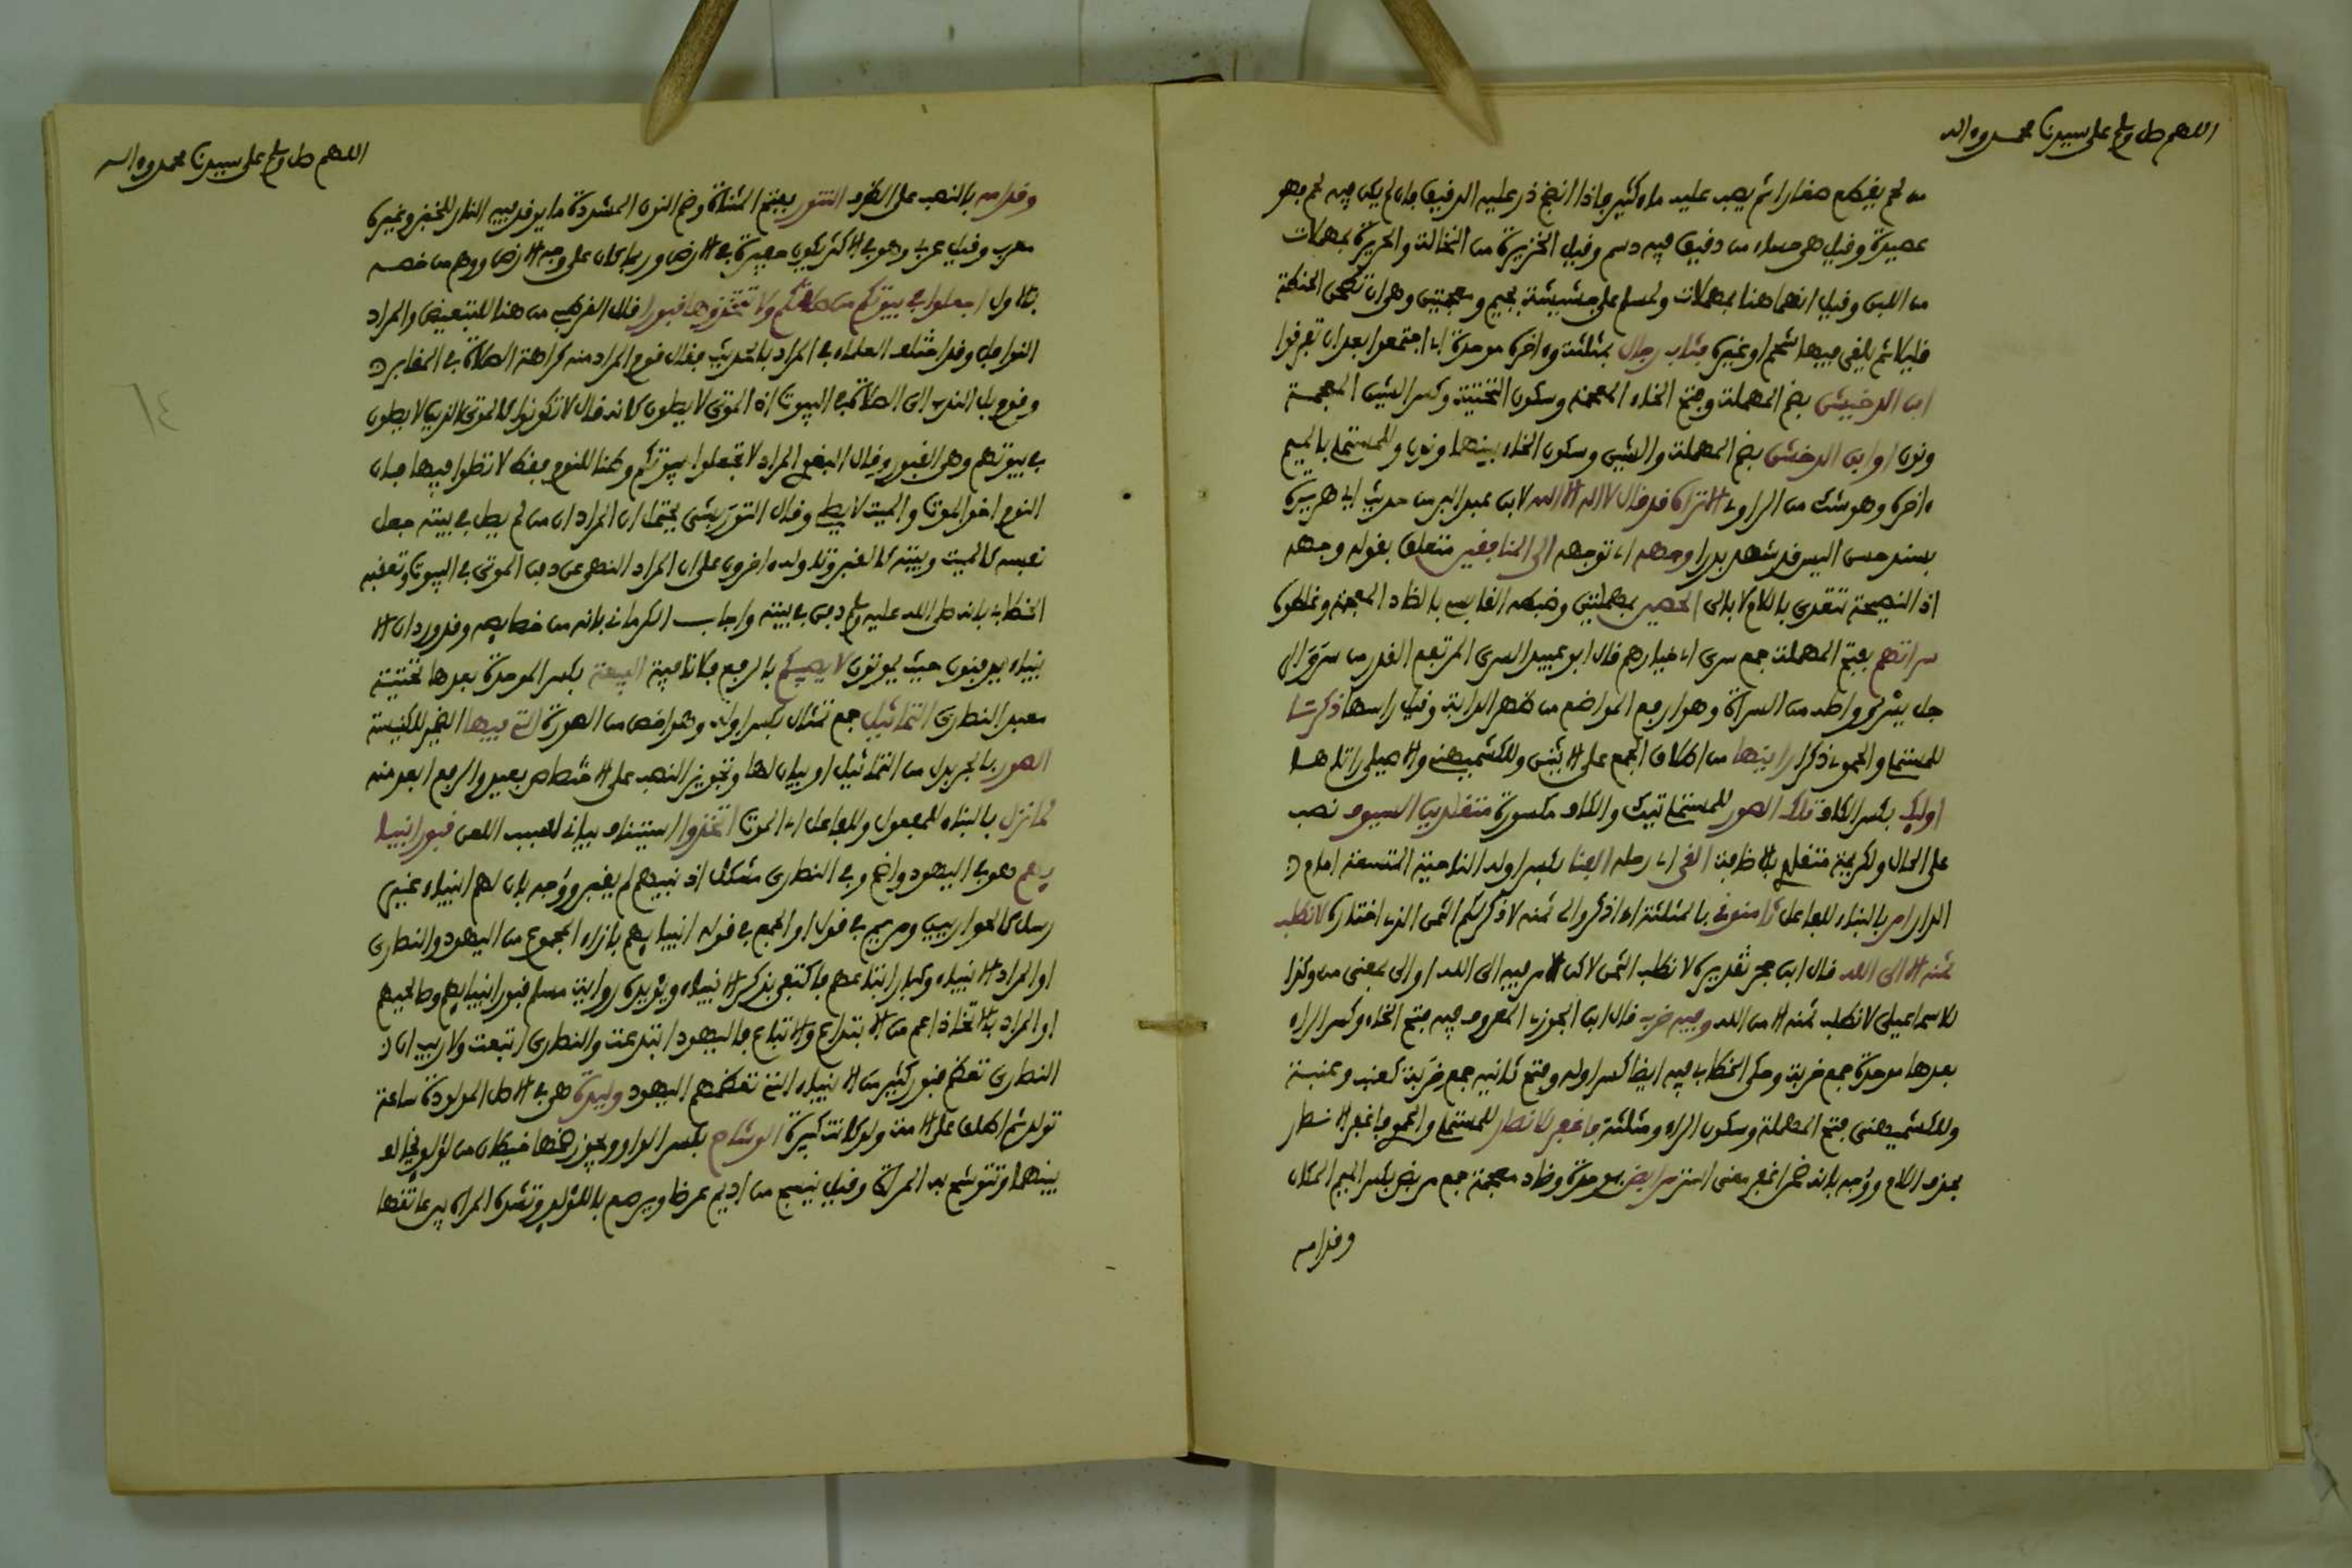 اللهم صل وسلم على سيدنا محمد وءاله
من لحم يقطع صغارا ثم يصب عليه ماء كثير فإذا انضج ذر عليه الدقيق فإن لم يكن فيه لحم فهو
عصيدة وقيل هي حساء من دقيق فيه دسم وقيل الخزيرة من النخالة والحريرة بمهملات
من اللبن وقيل انهما هنا بمهملات ولمسلم على جشيشة بجيم ومعجمتين وهو ان تطحن الحنطة
قليلا ثم يلقى فيها شحم او غيره فثاب رجال بمثلثة وءاخره موحدة اي اجتمعوا بعد ان تفرقوا
ابن الدخيشن بضم المهملة وفتح الخاء المعجمة وسكون التحتية وكسر الشين المعجمة
ونون او ابن الدخشن بضم المهملة والشين وسكون الخاء بينهما ونون وللمستملي بالميم
ءاخره وهو شك من الراوي الا تراه قد قال لا اله الا الله لابن عبد البر من حديث ابي هريرة
بسند حسن اليس قد شهد بدرا وجهه اي توجهه الى المنافقين متعلق بقوله وجهه
اذ النصيحة تتعدى باللام لا بالى الحصين بمهملتين وضبطه القابسي بالضاد المعجمة وغلطوه
سراتهم بفتح المهملة جمع سري اي خيارهم قال ابو عبيد السري المرتفع القدر من سرو الر
جل يسرو واصله من السراة وهو ارفع المواضع من ظهر الدابة وقيل راسها ذكرتا
للمستملي والحموي ذكرا راينها من اطلاق الجمع على الاثنين وللكشميهني والاصيلي راتاها
اولئك بكسر الكاف تلك الصور للمستملي تيك والكاف مكسورة متقلدين السيوف نصب
على الحال ولكريمة متقلدي بالاضافة القى اي رحله بفنا بكسر اوله الناحية المتسعة امام
الدار امر بالبناء للفاعل ثامنوني بالمثلثة اي اذكروا لي ثمنه لاذكر لكم الثمن الذي اختاره لا نطلب
ثمنه الا الى الله قال ابن حجر تقديره لا نطلب الثمن لاكن الامر فيه الى الله او الى بمعنى من وكذا
للاسماعيلي لا نطلب ثمنه الا من الله وفيه خرب قال ابن الجوزي المعروف فيه فتح الخاء وكسر الراء
بعدها موحدة جمع خربة وحكى الخطابي فيه ايضا كسر اوله وفتح ثانيه جمع خربة كعنب وعنبة
وللكشميهني بفتح المهملة وسكون الراء ومثلثة فاغفر للانصار للمستملي والحموي فاغفر الانصار
بحذف اللام ووجه بانه ضمن اغفر معنى استر مرابض بموحدة وضاد معجمة جمع مربض بكسر الميم المكان
وقدامه
اللهم صل وسلم على سيدنا محمد وءاله
وقدامه بالنصب على الظرف التنور بفتح المثناة وضم النون المشددة ما يوقد فيه النار للخبز وغيره
معرب وقيل عربي وهو في الاكثر يكون حفيرة في الارض وربما كان على وجه الارض ووهم من خصه
بالاول اجعلوا في بيوتكم من صلاتكم ولا تتخذوها قبورا قال القرطبي من هنا للتبعيض والمراد
النوافل وقد اختلف العلماء في المراد بالحديث فقال قوم المراد منه كراهة الصلاة في المقابر
وقوم بل الندب الى الصلاة في البيوت اذ الموتى لا يصلون كانه قال لا تكونوا كالموتى الذين لا يصلون
في بيوتهم وهي القبور وقال البغوي المراد لا تجعلوا بيوتكم وطنا للنوم فقط لا تصلوا فيها فإن
النوم اخو الموت والميت لا يصلي وقال التوربشتي يحتمل ان المراد ان من لم يصل في بيته جعل
نفسه كالميت وبيته كالقبر وتاوله ءاخرون على ان المراد النهي عن دفن الموتى في البيوت وتعقبه
الخطابي بانه صلى الله عليه وسلم دفن في بيته واجاب الكرماني بانه من خصايصه وقد ورد ان الا
نبياء يدفنون حيث يموتون لا يصيبكم بالرفع فلا نافية البيعة بكسر الموحدة بعدها تحتية
معبد النصارى التماثيل جمع تمثال بكسر اوله وهو اخص من الصورة التي فيها الضمير للكنيسة
الصور بالجر بدل من التماثيل او بيان لها وتجويز النصب على الاختصاص بعيد والرفع ابعد منه
لما نزل بالبناء للمفعول وللفاعل اي الموت اتخذوا استيناف بياني لسبب اللعن قبور انبيا
يهم هو في اليهود واضح وفي النصارى مشكل اذ نبيهم لم يقبر ووجه بان لهم انبياء غير
رسل كالحواريين ومريم في قول او الجمع في قوله انبيايهم بازاء المجموع من اليهود والنصارى
او المراد الانبياء وكبار اتباعهم فاكتفى بذكر الانبياء ويؤيده رواية مسلم قبور انبيايهم وصالحيهم
او المراد بالاتخاذ اعم من الابتداع والاتباع فاليهود ابتدعت والنصارى اتبعت ولا ريب ان
النصارى تعظم قبور كثير من الانبياء التي تعظمهم اليهود وليدة هي في الاصل المولودة ساعة
تولد ثم اطلق على الامة ولو كانت كبيرة الوشاح بكسر الواو ويجوز ضمها خيطان من لؤلؤ يخالف
بينهما وتتوشح به المراة وقيل ينسج من اديم عرضا ويرصع باللؤلؤ وتشده المراة بين عاتقها